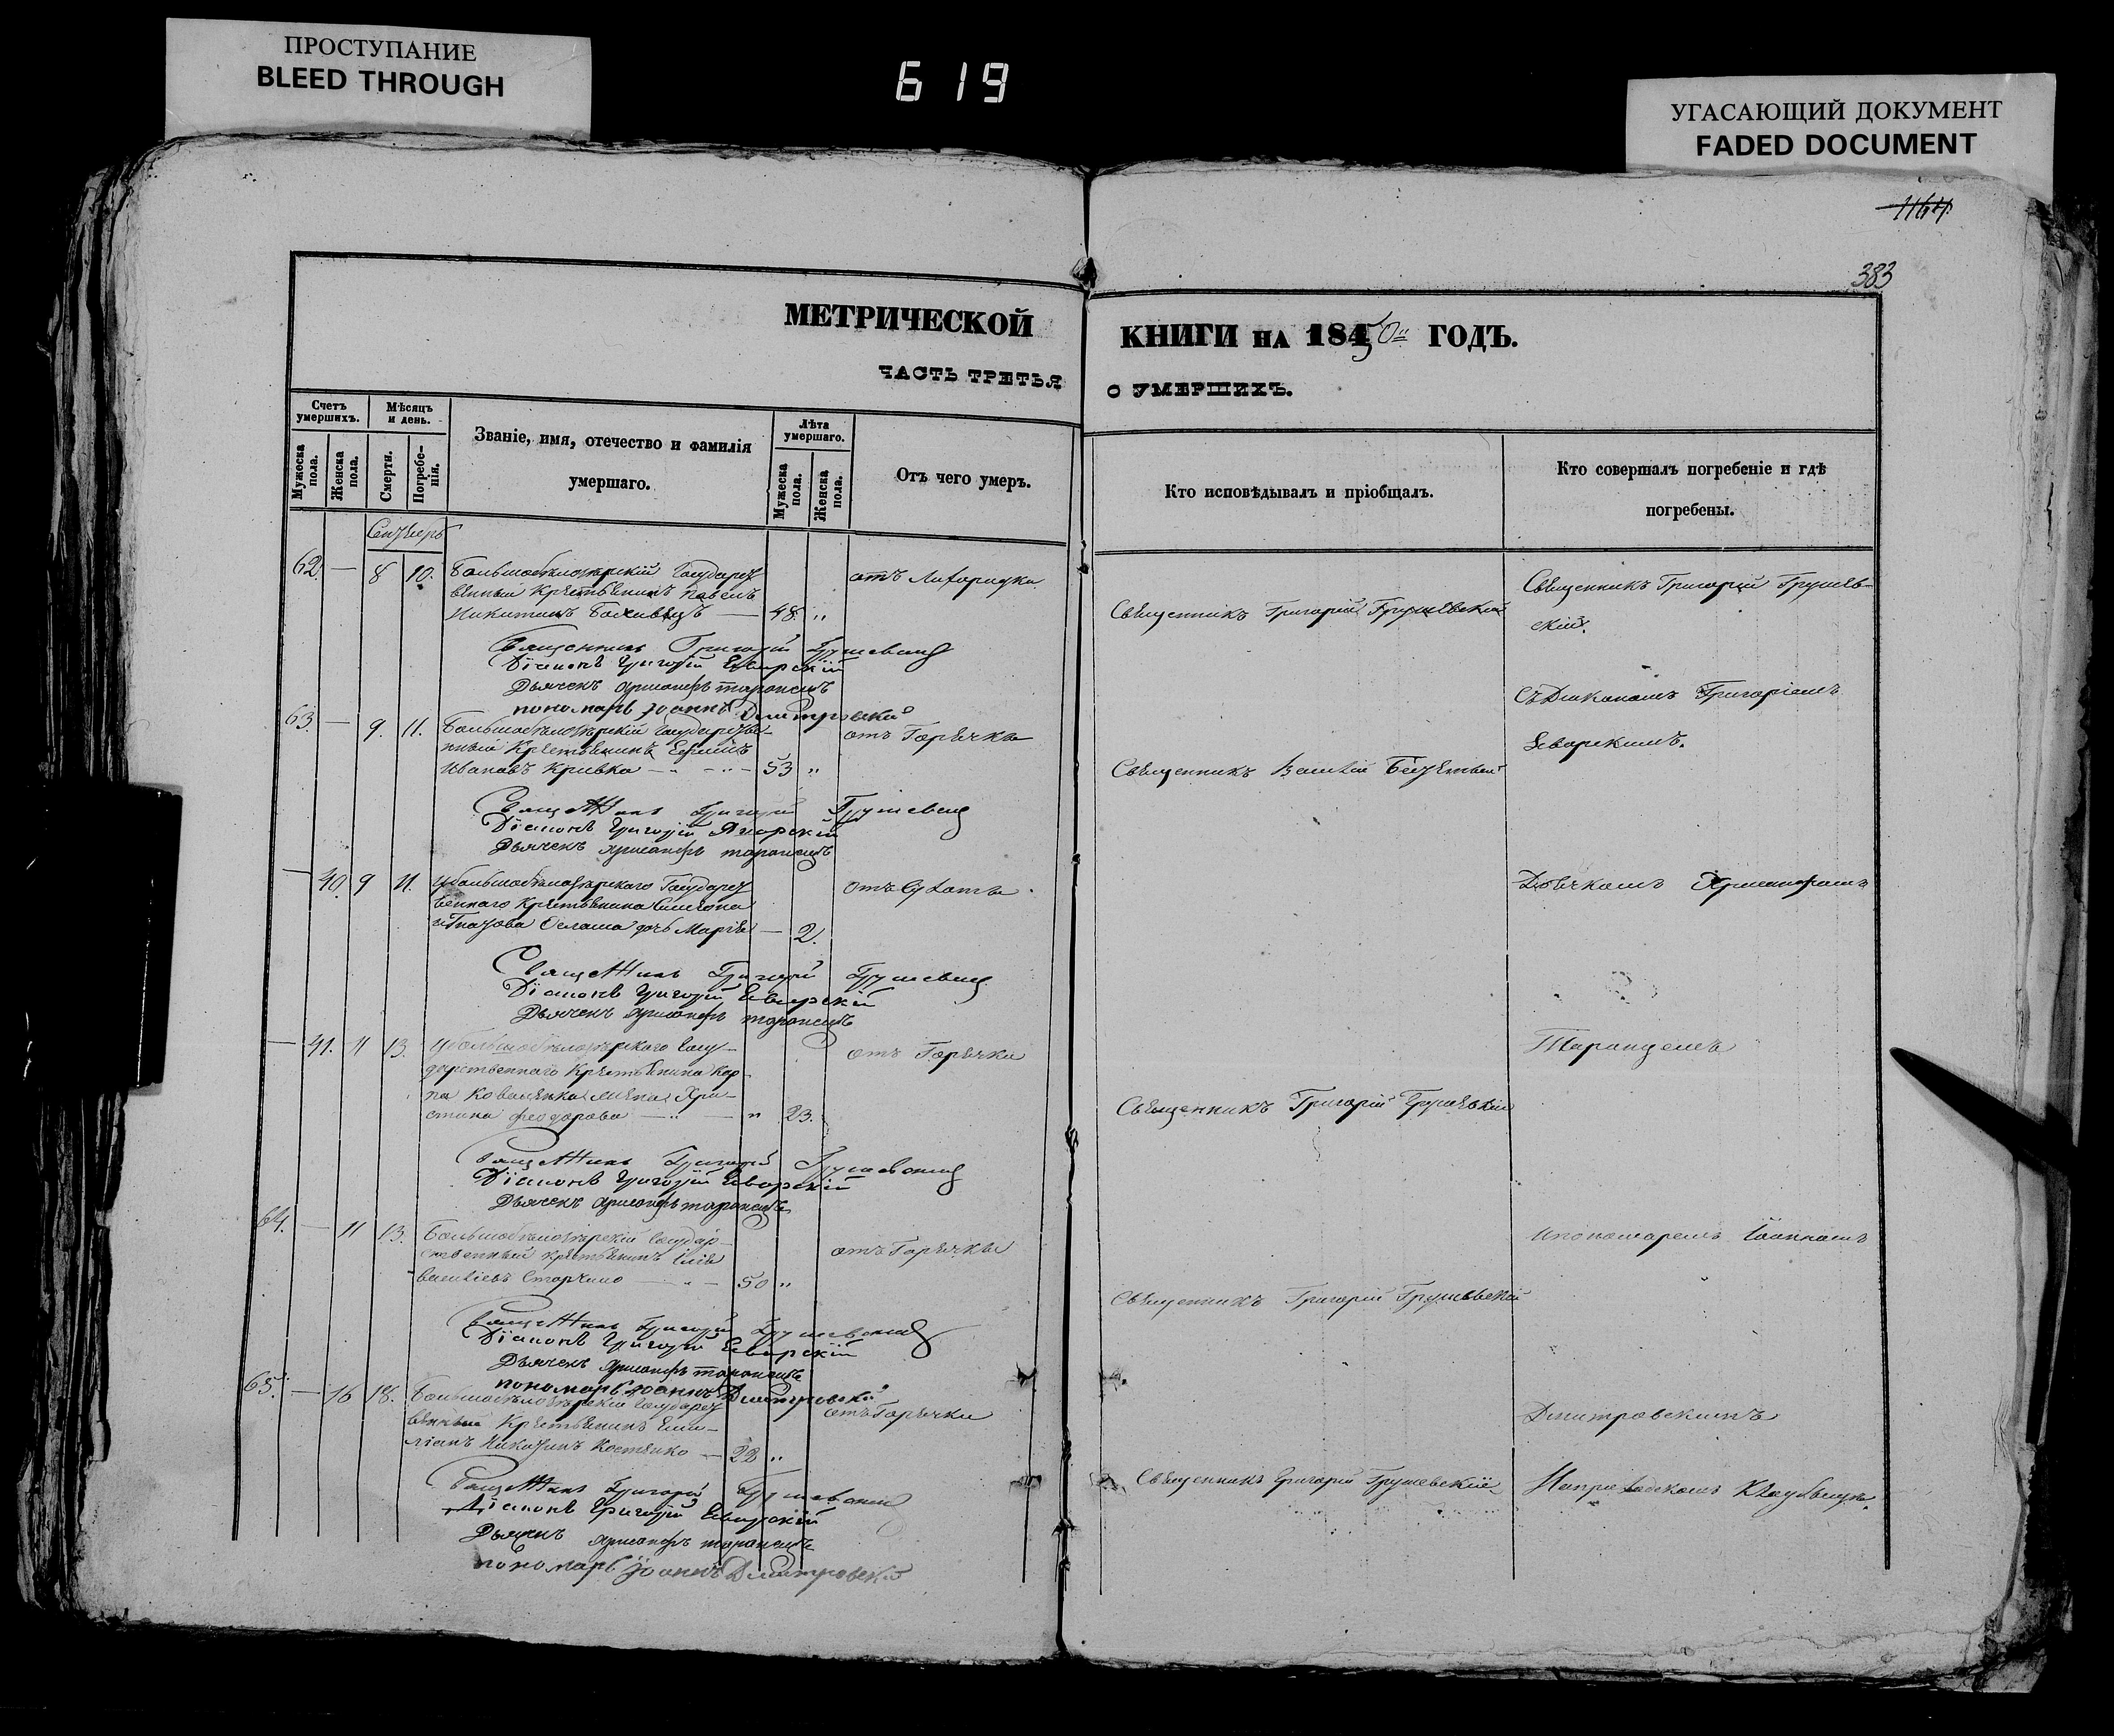 ПРОСТУПАНИЕ
BLEED THROUGH
619
УГАСАЮЩИЙ ДОКУМЕНТ
FADED DOCUMENT
1164
383
МЕТРИЧЕСКОЙ КНИГИ НА 1850 ГОДЪ.
ЧАСТЬ ТРЕТЬЯ О УМЕРШИХЪ.
Счетъ умершихъ.
Мужеска пола.
Женска пола.
Мѣсяцъ и день.
Смерти.
Погребенія.
Званіе, имя, отечество и фамилія
умершаго.
Лѣта умершаго.
Мужеска пола.
Женска пола.
Отъ чего умеръ.
Кто исповѣдывалъ и пріобщалъ.
Кто совершалъ погребеніе и гдѣ
погребены.
62. — 8 10. Большобѣлозѣрскій Государст
венный Крестьянинъ Павелъ
Никитинъ — 48. "
отъ Лихорадки
Священникъ Григорій Грушевскій
Священникъ Григорій Грушев-
скій.
Священникъ Григорій Грушевскій
Діаконъ Григорій Яворскій
Дьячекъ Таранецъ
пономарь Іоаннъ Дмитровскій
съ Діакономъ Григоріемъ
Яворскимъ.
63. — 9. 11. Большобѣлозѣрскій Государстве-
нный Крестьянинъ
Ивановъ Кривко — 53 "
отъ Горячки
Священникъ Василій
Священникъ Григорій Грушевскій
Діаконъ Григорій Яворскій
Дьячекъ Таранецъ
— 40. 9 11. Большобѣлозѣрскаго Государст
веннаго Крестьянина Симеона
дочь Марія — 2.
отъ
Дьячкомъ
Священникъ Григорій Грушевскій
Діаконъ Григорій Яворскій
Дьячекъ Таранецъ
— 41. 11 13. Большобѣлозѣрскаго Госу-
дарственнаго Крестьянина Кар-
па Коваленка жена Хри-
стина Феодорова — " 23.
отъ Горячки
Священникъ Григорій Грушевскій
Таранцемъ
Священникъ Григорій Грушевскій
Діаконъ Григорій Яворскій
Дьячекъ Таранецъ
64. — 11 13. Большобѣлозѣрскій Государ-
ственный Крестьянинъ Илія
Васильевъ — 50 "
отъ Горячки
Священникъ Григорій Грушевскій
и пономаремъ Іоанномъ
Священникъ Григорій Грушевскій
Діаконъ Григорій Яворскій
Дьячекъ Таранецъ
пономарь Іоаннъ Дмитровскій
65. — 16 18. Большобѣлозѣрскій Государст
венный Крестьянинъ Еми-
ліанъ Костенко — 22 "
отъ Горячки
Священникъ Григорій Грушевскій
Дмитровскимъ
На приходскомъ Кладбищѣ.
Священникъ Григорій Грушевскій
Діаконъ Григорій Яворскій
Дьячекъ Таранецъ
пономарь Іоаннъ Дмитровскій